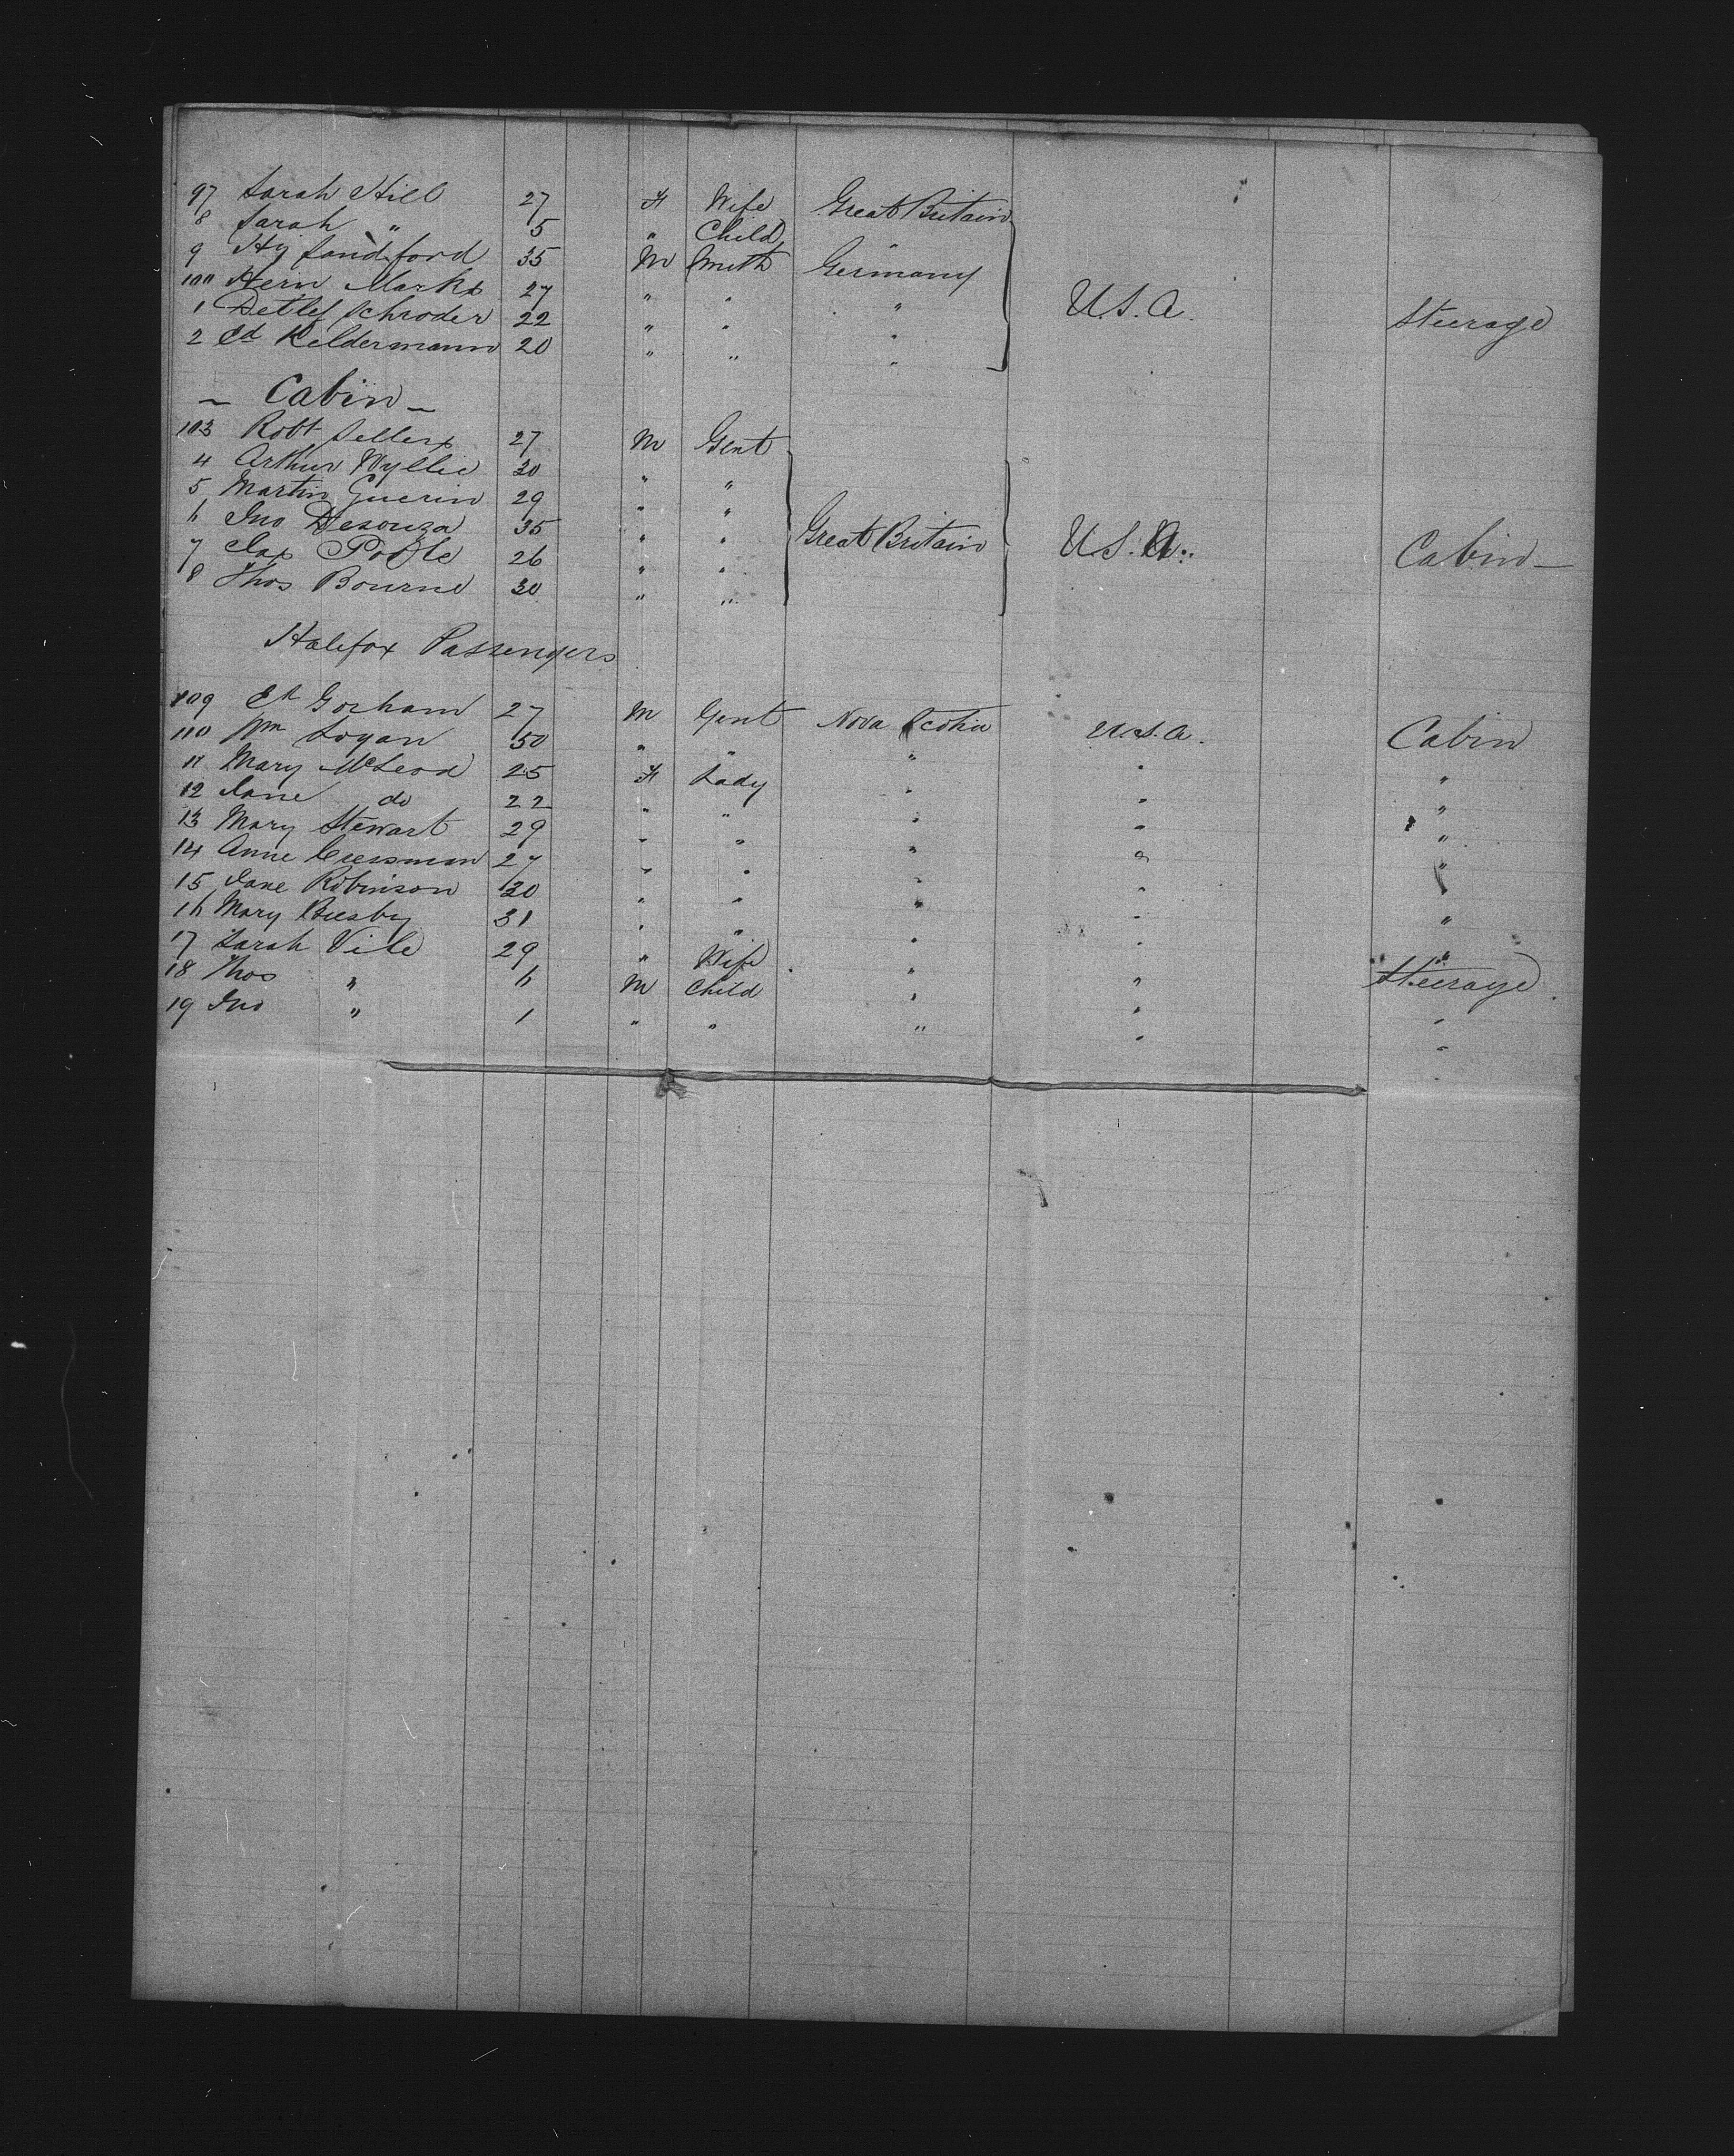 97 Sarah Hill 27 F Wife Great Britain
8 Sarah " 5 " Child "
9 Hy Sandford 35 M Smith Germany
100 Hein Marks 27 " " " U.S.A. Steerage
1 Detlef Schroder 22 " " "
2 Ed Keldermann 20 " " "
— Cabin —
103 Robt Sellers 27 M Gent
4 Arthur Wyllie 30 " "
5 Martin Guerin 29 " "
6 Jno Desouza 35 " " Great Britain U.S.A. Cabin —
7 Jas Poole 26 " "
8 Thos Bourne 30 " "
Halifax Passengers
109 Ed Gorham 27 M Gent Nova Scotia U.S.A. Cabin
110 Wm Logan 50 " " " " "
11 Mary McLeod 25 F Lady " " "
12 Jane do 22 " " " " "
13 Mary Stewart 29 " " " " "
14 Anne Cressman 27 " " " " "
15 Jane Robinson 30 " " " " "
16 Mary Beesby 31 " " " " "
17 Sarah Vile 29 " Wife " " Steerage
18 Thos " 6 M Child " " "
19 Jno " 1 " " " " "